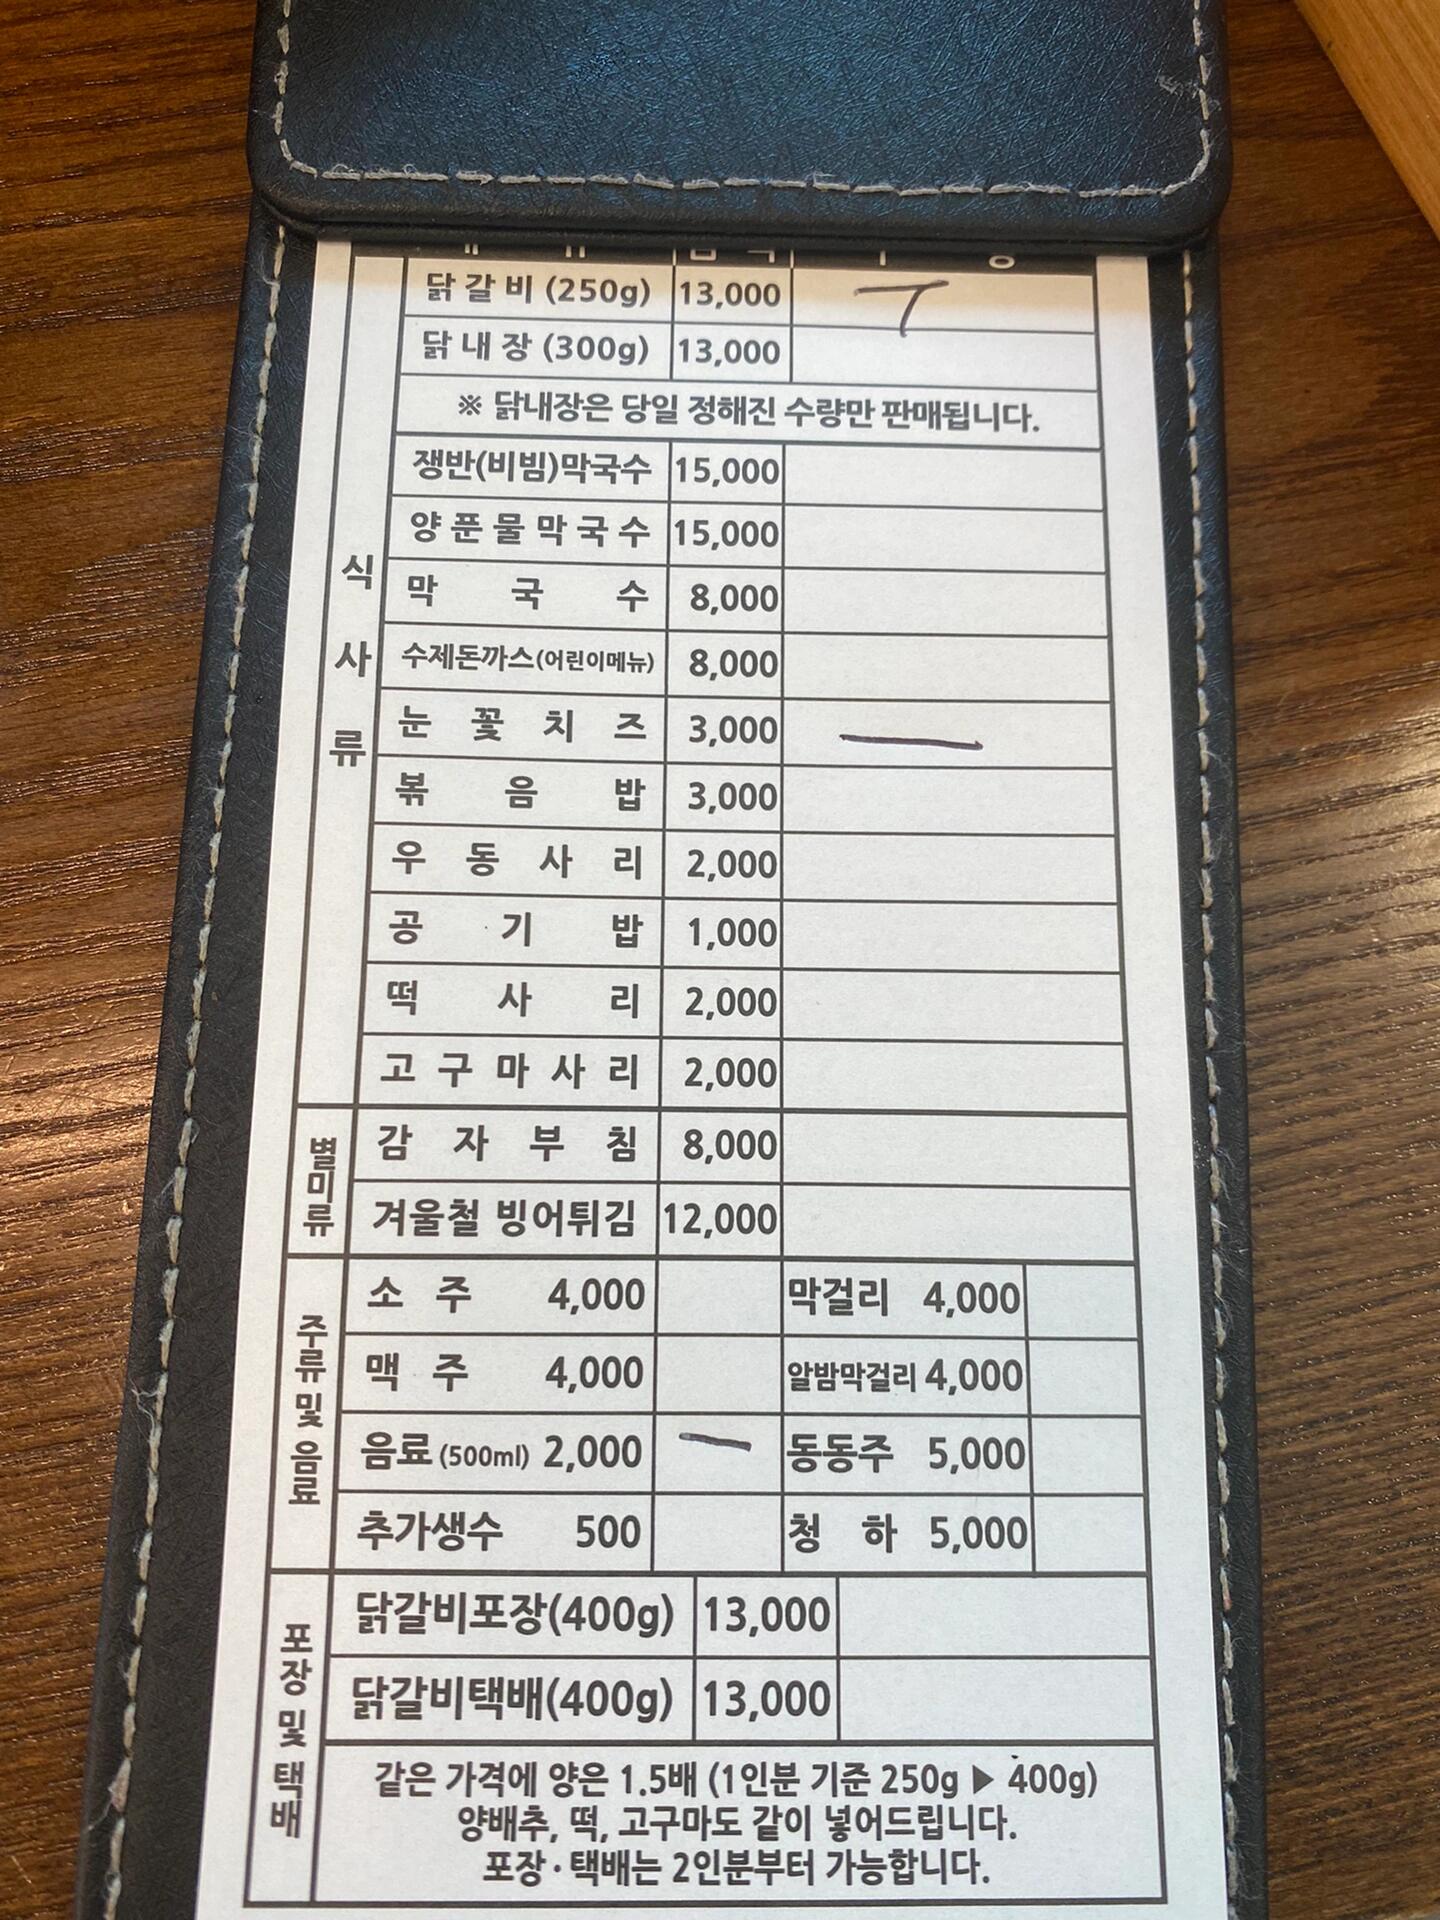 닭갈비 (250g) 13,000
닭내장 (300g) 13,000
※ 닭내장은 당일 정해진 수량만 판매됩니다.
쟁반(비빔)막국수 15,000
양푼물막국수 15,000
식사류
막국수 8,000
수제돈까스(어린이메뉴) 8,000
눈꽃치즈 3,000
볶음밥 3,000
우동사리 2,000
공기밥 1,000
떡사리 2,000
고구마사리 2,000
별미류
감자부침 8,000
겨울철 빙어튀김 12,000
주류 및 음료
소주 4,000 막걸리 4,000
맥주 4,000 알밤막걸리 4,000
음료 (500ml) 2,000 동동주 5,000
추가생수 500 청하 5,000
포장 및 택배
닭갈비포장(400g) 13,000
닭갈비택배(400g) 13,000
같은 가격에 양은 1.5배 (1인분 기준 250g ▶ 400g)
양배추, 떡, 고구마도 같이 넣어드립니다.
포장 · 택배는 2인분부터 가능합니다.